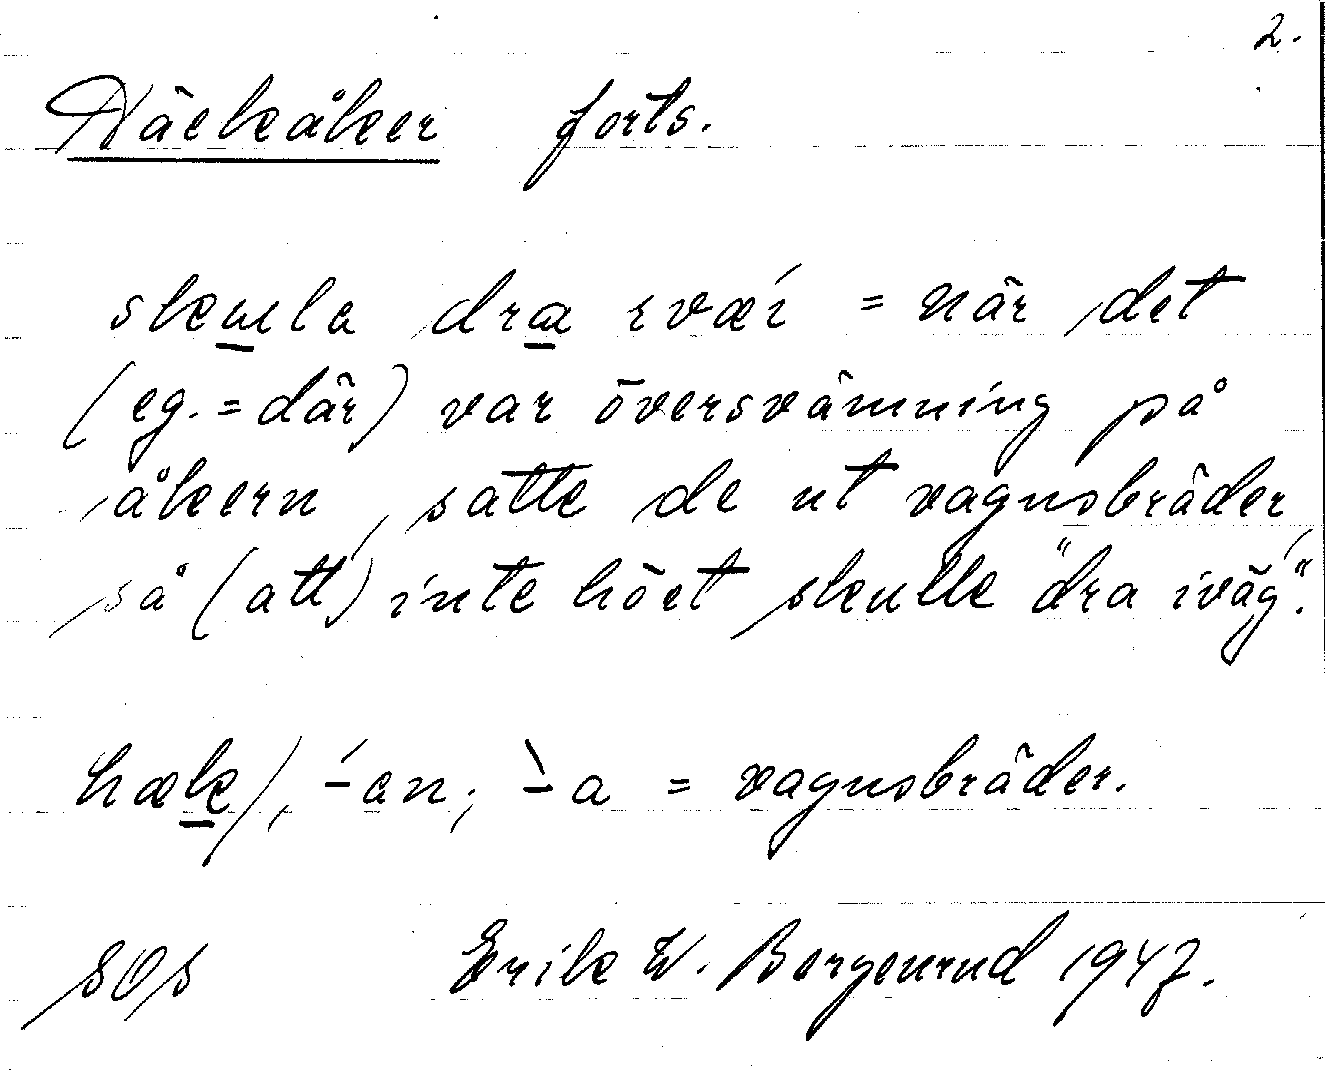 2.
Näckåker forts.
skulla dra ɩvæɩ́ = när det
(eg. = där) var översvämning på
åkern, satte de ut vagnsbräder,
så (att) inte höet skulle "dra iväg".
hæk/, ́-en; ̀-a = vagnsbräder.
SOS Erik W. Bergenrud 1947.